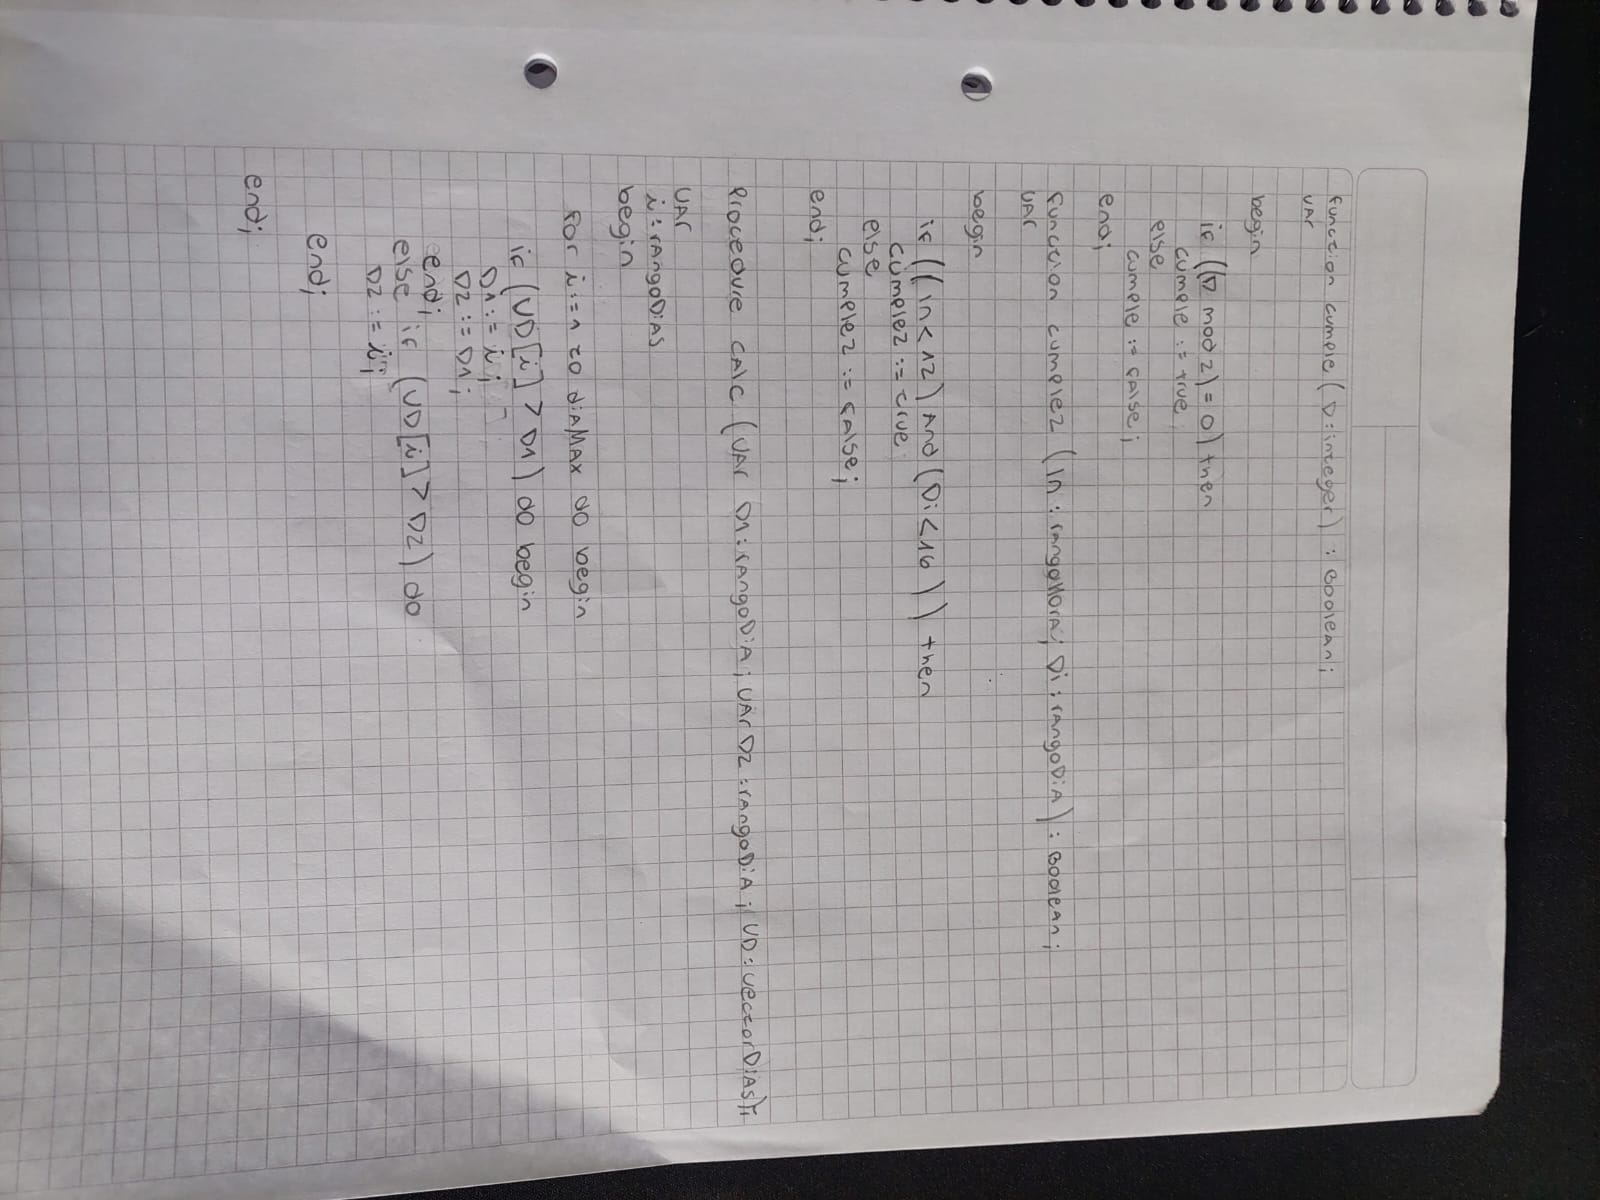 function cumple ( D:integer) : Boolean;
VAr
begin
if ((D mod 2) = 0) then
cumple := true
else
cumple := false;
end;
function cumple2 (In : rangoHora; Di : rangoDiA) : Boolean;
VAr
begin
if ((in<12) And (Di<16)) then
cumple2 := true
else
cumple2 := false;
end;
Procedure CALC (VAr D1:rAngoDiA; VAr D2:rAngoDiA; VD:vectorDiAs);
VAr
i:rAngoDiAs
begin
for i:=1 to diAMAX do begin
if (VD[i] > D1) do begin
D1:= i;
D2 := D1;
end;
else if (VD[i] > D2) do
D2 := i;
end;
end;